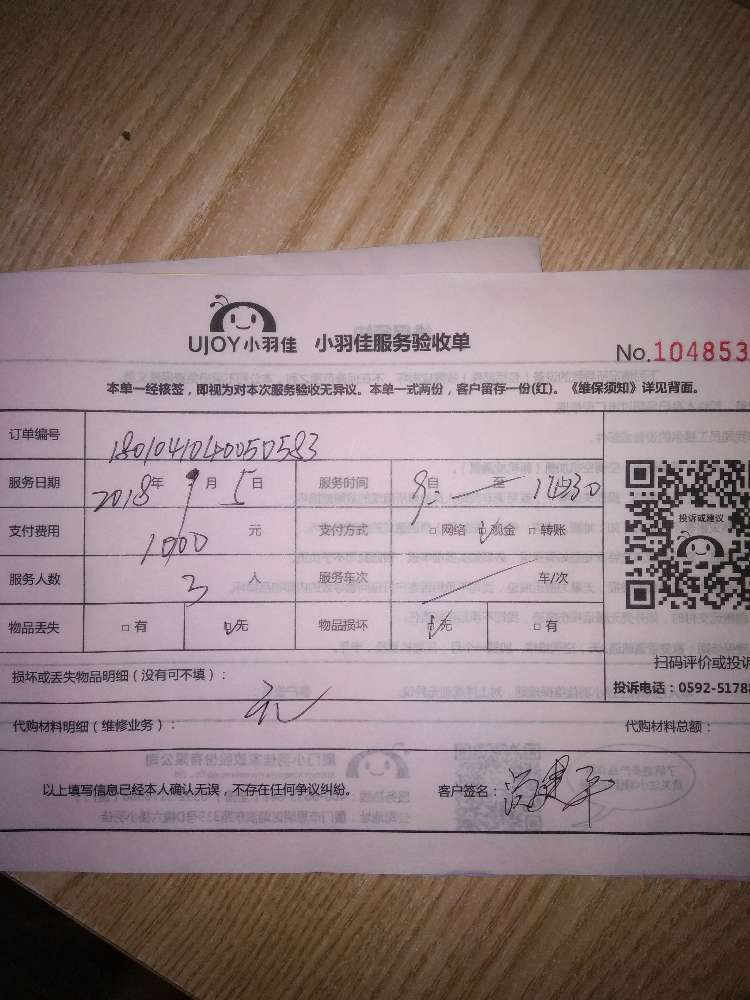 UJOY小羽佳 小羽佳服务验收单
No.104853
本单一经核签，即视为对本次服务验收无异议。本单一式两份，客户留存一份(红)。《维保须知》详见背面。
订单编号 1801041040050583
服务日期 2018年9月5日 服务时间 自9:00至
支付费用 1000元 支付方式 □网络 ☑现金 □转账
服务人数 3人 服务车次 车/次
物品丢失 □有 ☑无 物品损坏 ☑无 □有
投诉或建议
扫码评价或投诉
投诉电话：0592-5178
损坏或丢失物品明细（没有可不填）：
无
代购材料明细（维修业务）： 代购材料总额：
以上填写信息已经本人确认无误，不存在任何争议纠纷。 客户签名：